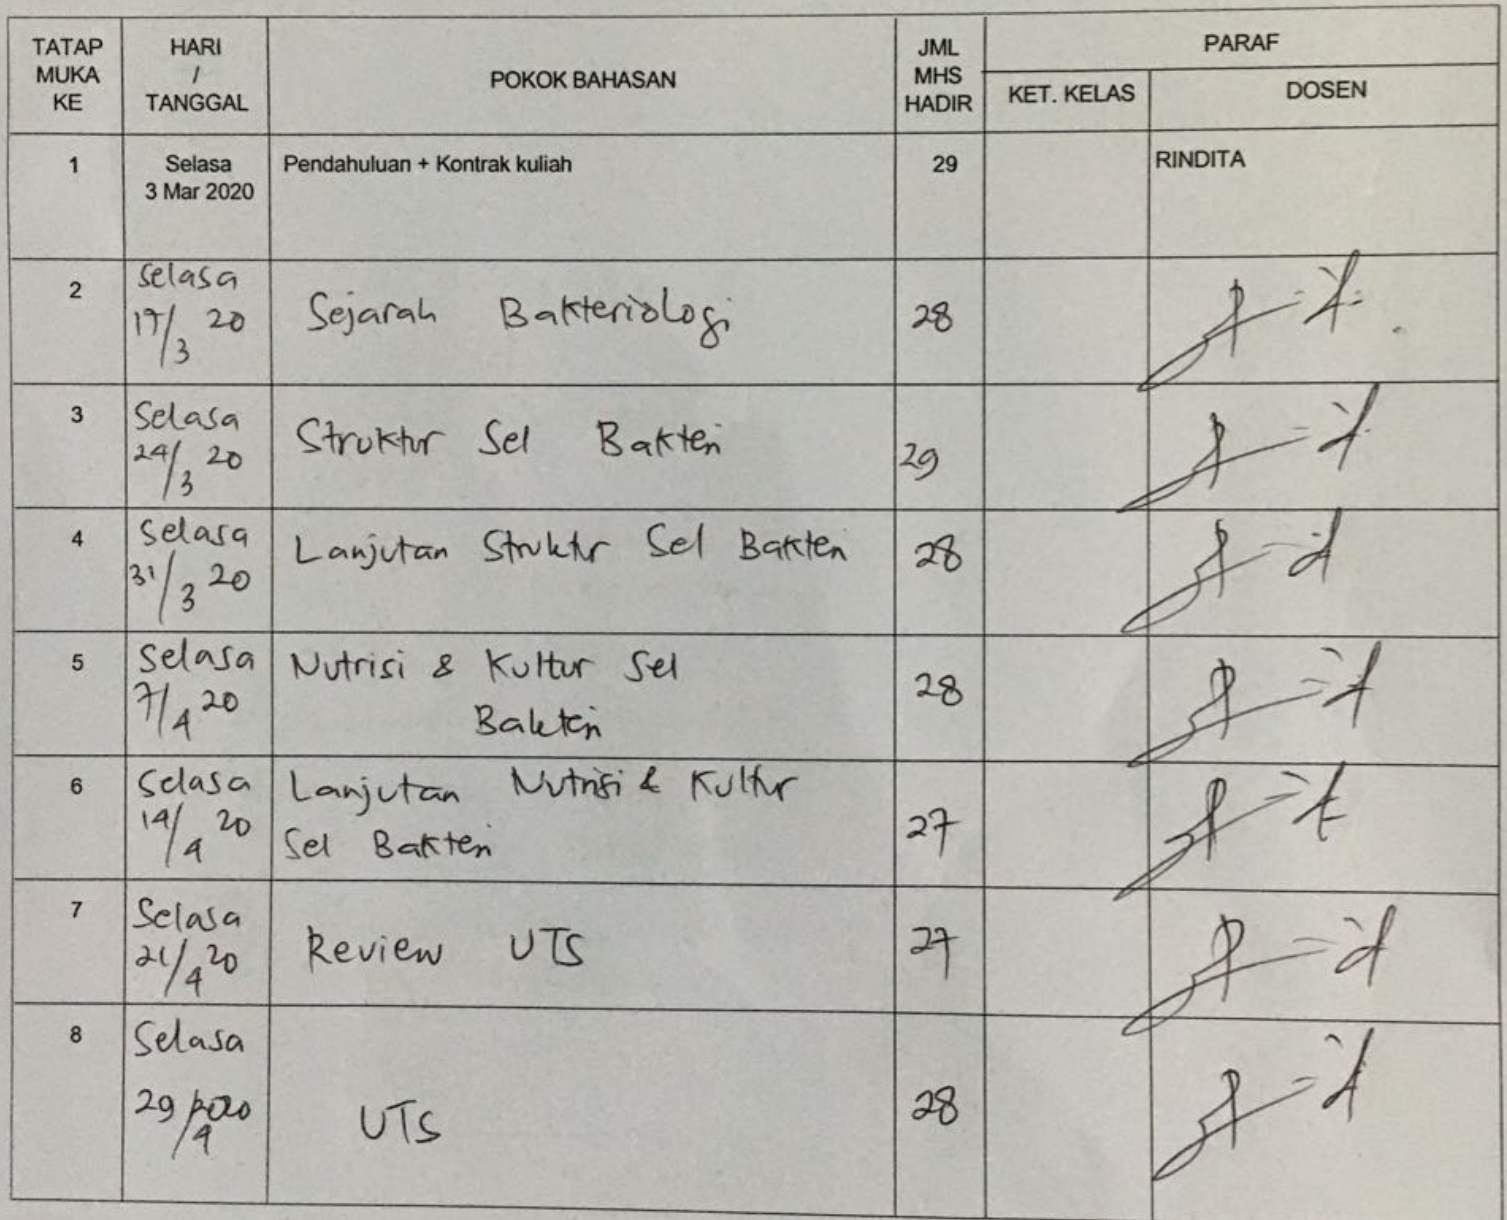 TATAP MUKA KE
HARI / TANGGAL
POKOK BAHASAN
JML MHS HADIR
PARAF
KET. KELAS
DOSEN
1
Selasa
3 Mar 2020
Pendahuluan + Kontrak kuliah
29
RINDITA
2
Selasa
17/3 20
Sejarah Bakteriologi
28
3
Selasa
24/3 20
Struktur Sel Bakteri
29
4
Selasa
31/3 20
Lanjutan Struktur Sel Bakteri
28
5
Selasa
7/4 20
Nutrisi & Kultur Sel
Bakteri
28
6
Selasa
14/4 20
Lanjutan Nutrisi & Kultur
Sel Bakteri
27
7
Selasa
21/4 20
Review UTS
27
8
Selasa
29/4 2020
UTS
28